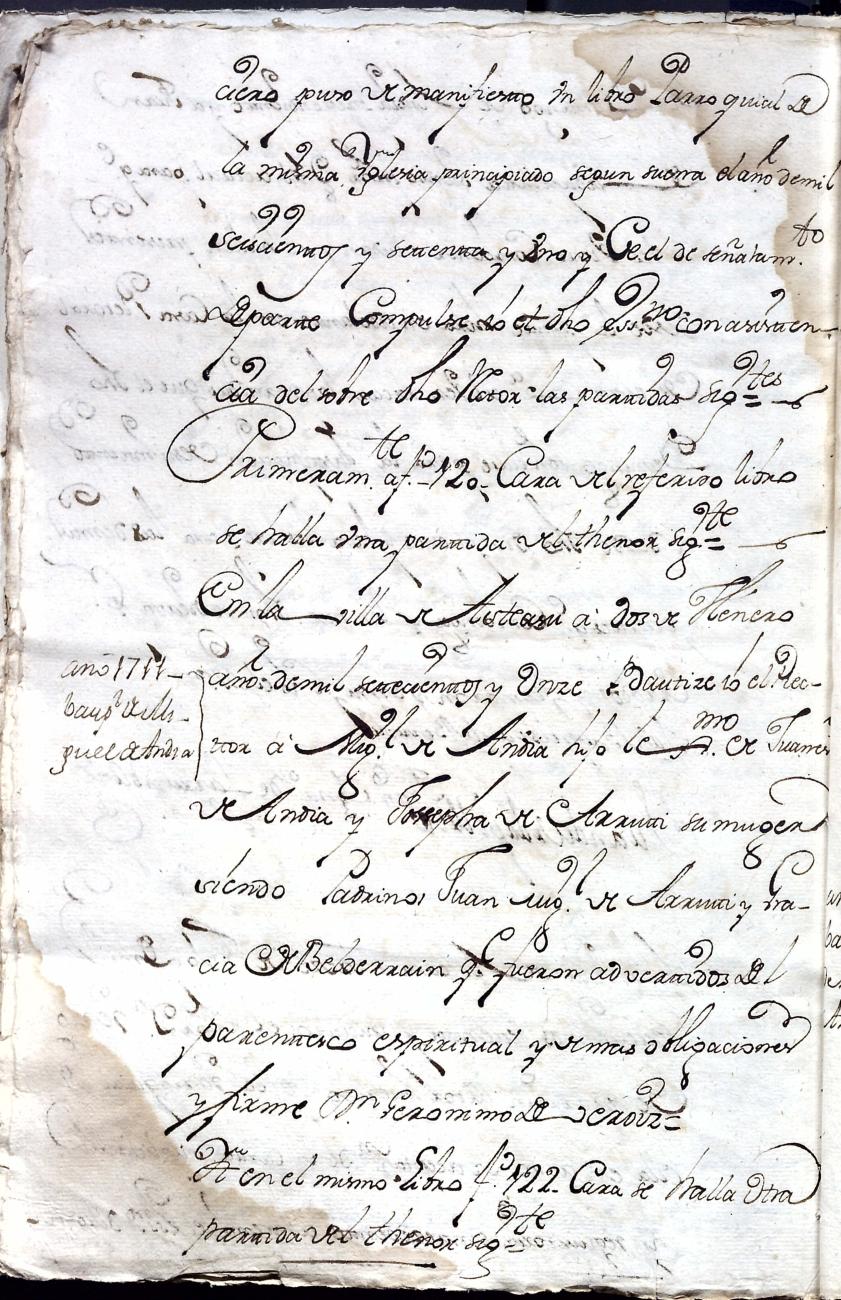 ciero puso de manifiesto Vn libro Parroquial de
la misma Yglesia principiado segun suena el año de mil
seiscienttos y settentta y Vno y Ce el de señalam.to
de partte Compulse io el dho Ess.no con asistten-
cia del sobre dho Rector las parttidas sigtes =
Primeram.te a f.o 120. Cara del referido libro
se halla Vna parttida del thenor sigte =
En la villa de Asteasu a dos de Henero
año de mil settecienttos y Onze Bautize io el Rec-
año 1711
baup.o de Mi-
guel de Andia
ttor a Mig.l de Andia hijo le xmo. de Juanes
de Andia y Josepha de Arrutti su muger
siendo Padrinos Juan Mig.l de Arrutti y Gra-
cia de Belderrain q.e fueron adverttidos del
parenttesco espiritual y demas obligaciones
y firme Dn Geronimo de veroiz =
Ytt en el mismo Libro f.o 122. Cara se halla Otra
parttida del thenor sigte =